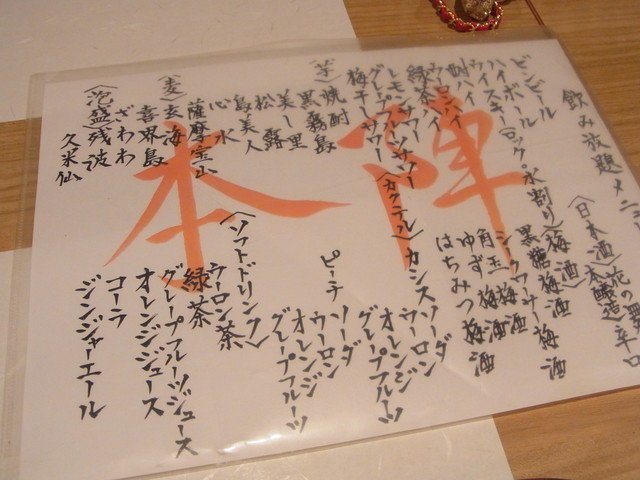 飲み放題メニュー
ビンビール
ハイボール
ウイスキー(ロック・水割り)
酎ハイ
ウーロンハイ
緑茶ハイ
レモンサワー
グレープフルーツサワー
梅干サワー
〈日本酒〉
〈本醸造〉辛口
〈梅酒〉
黒糖梅酒
シークワーサー梅酒
角玉梅酒
ゆず梅酒
はちみつ梅酒
〈芋〉焼酎
黒霧島
美し里
松露
島美人
心水
薩摩宝山
〈麦〉玄海
喜界島
〈泡盛〉残波
ざわわ
久米仙
〈カクテル〉
カシスソーダ
ウーロン
オレンジ
グレープフルーツ
ピーチソーダ
ウーロン
オレンジ
グレープフルーツ
〈ソフトドリンク〉
ウーロン茶
緑茶
グレープフルーツジュース
オレンジジュース
コーラ
ジンジャーエール
本陣